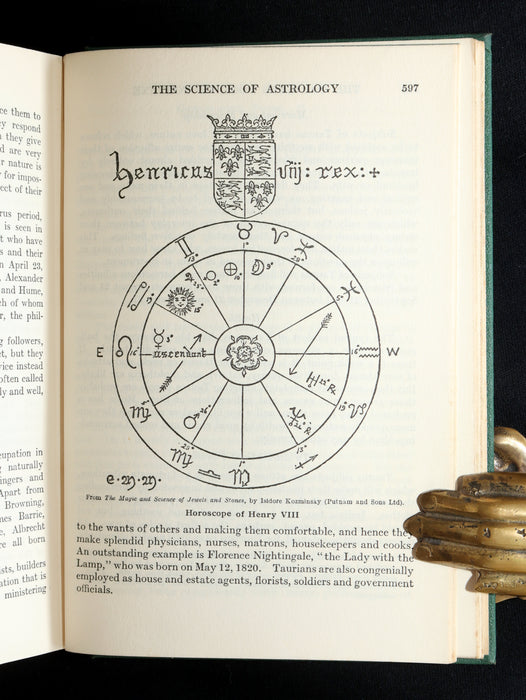 ce them to
y respond
they give
d are very
r nature is
for impos-
ect of their
rus period,
is seen in
t who have
s and their
n April 23,
Alexander
and Hume,
ch of whom
r, the phil-
g followers,
ct, but they
vice instead
often called
ly and well,
cupation in
naturally
ingers and
Apart from
Browning,
mes Barrie,
Albrecht
e all born
sts, builders
ation that is
ministering
THE SCIENCE OF ASTROLOGY 597
henricus viij: rex:+
E W
ascendant
From The Magic and Science of Jewels and Stones, by Isidore Kozminsky (Putnam and Sons Ltd).
Horoscope of Henry VIII
to the wants of others and making them comfortable, and hence they
make splendid physicians, nurses, matrons, housekeepers and cooks.
An outstanding example is Florence Nightingale, "the Lady with the
Lamp," who was born on May 12, 1820. Taurians are also congenially
employed as house and estate agents, florists, soldiers and government
officials.